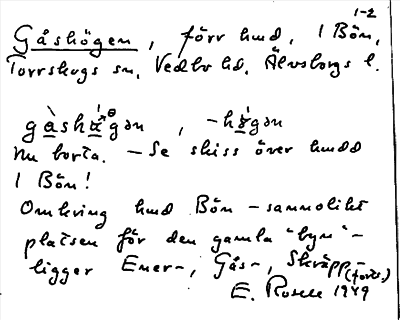 1-2
Gåshögen, förr hmd, 1 Bön,
Torrskogs sn, Vedbo hd, Älvsborgs l.
gàshǻgǝn, -hø̀gǝn
Nu borta. — Se skiss över hmdd
1 Bön!
Omkring hmd Bön – sannolikt
platsen för den gamla "byn" –
ligger Ener-, Gås-, Skräpp-
(forts.)
E. Rosell 1949